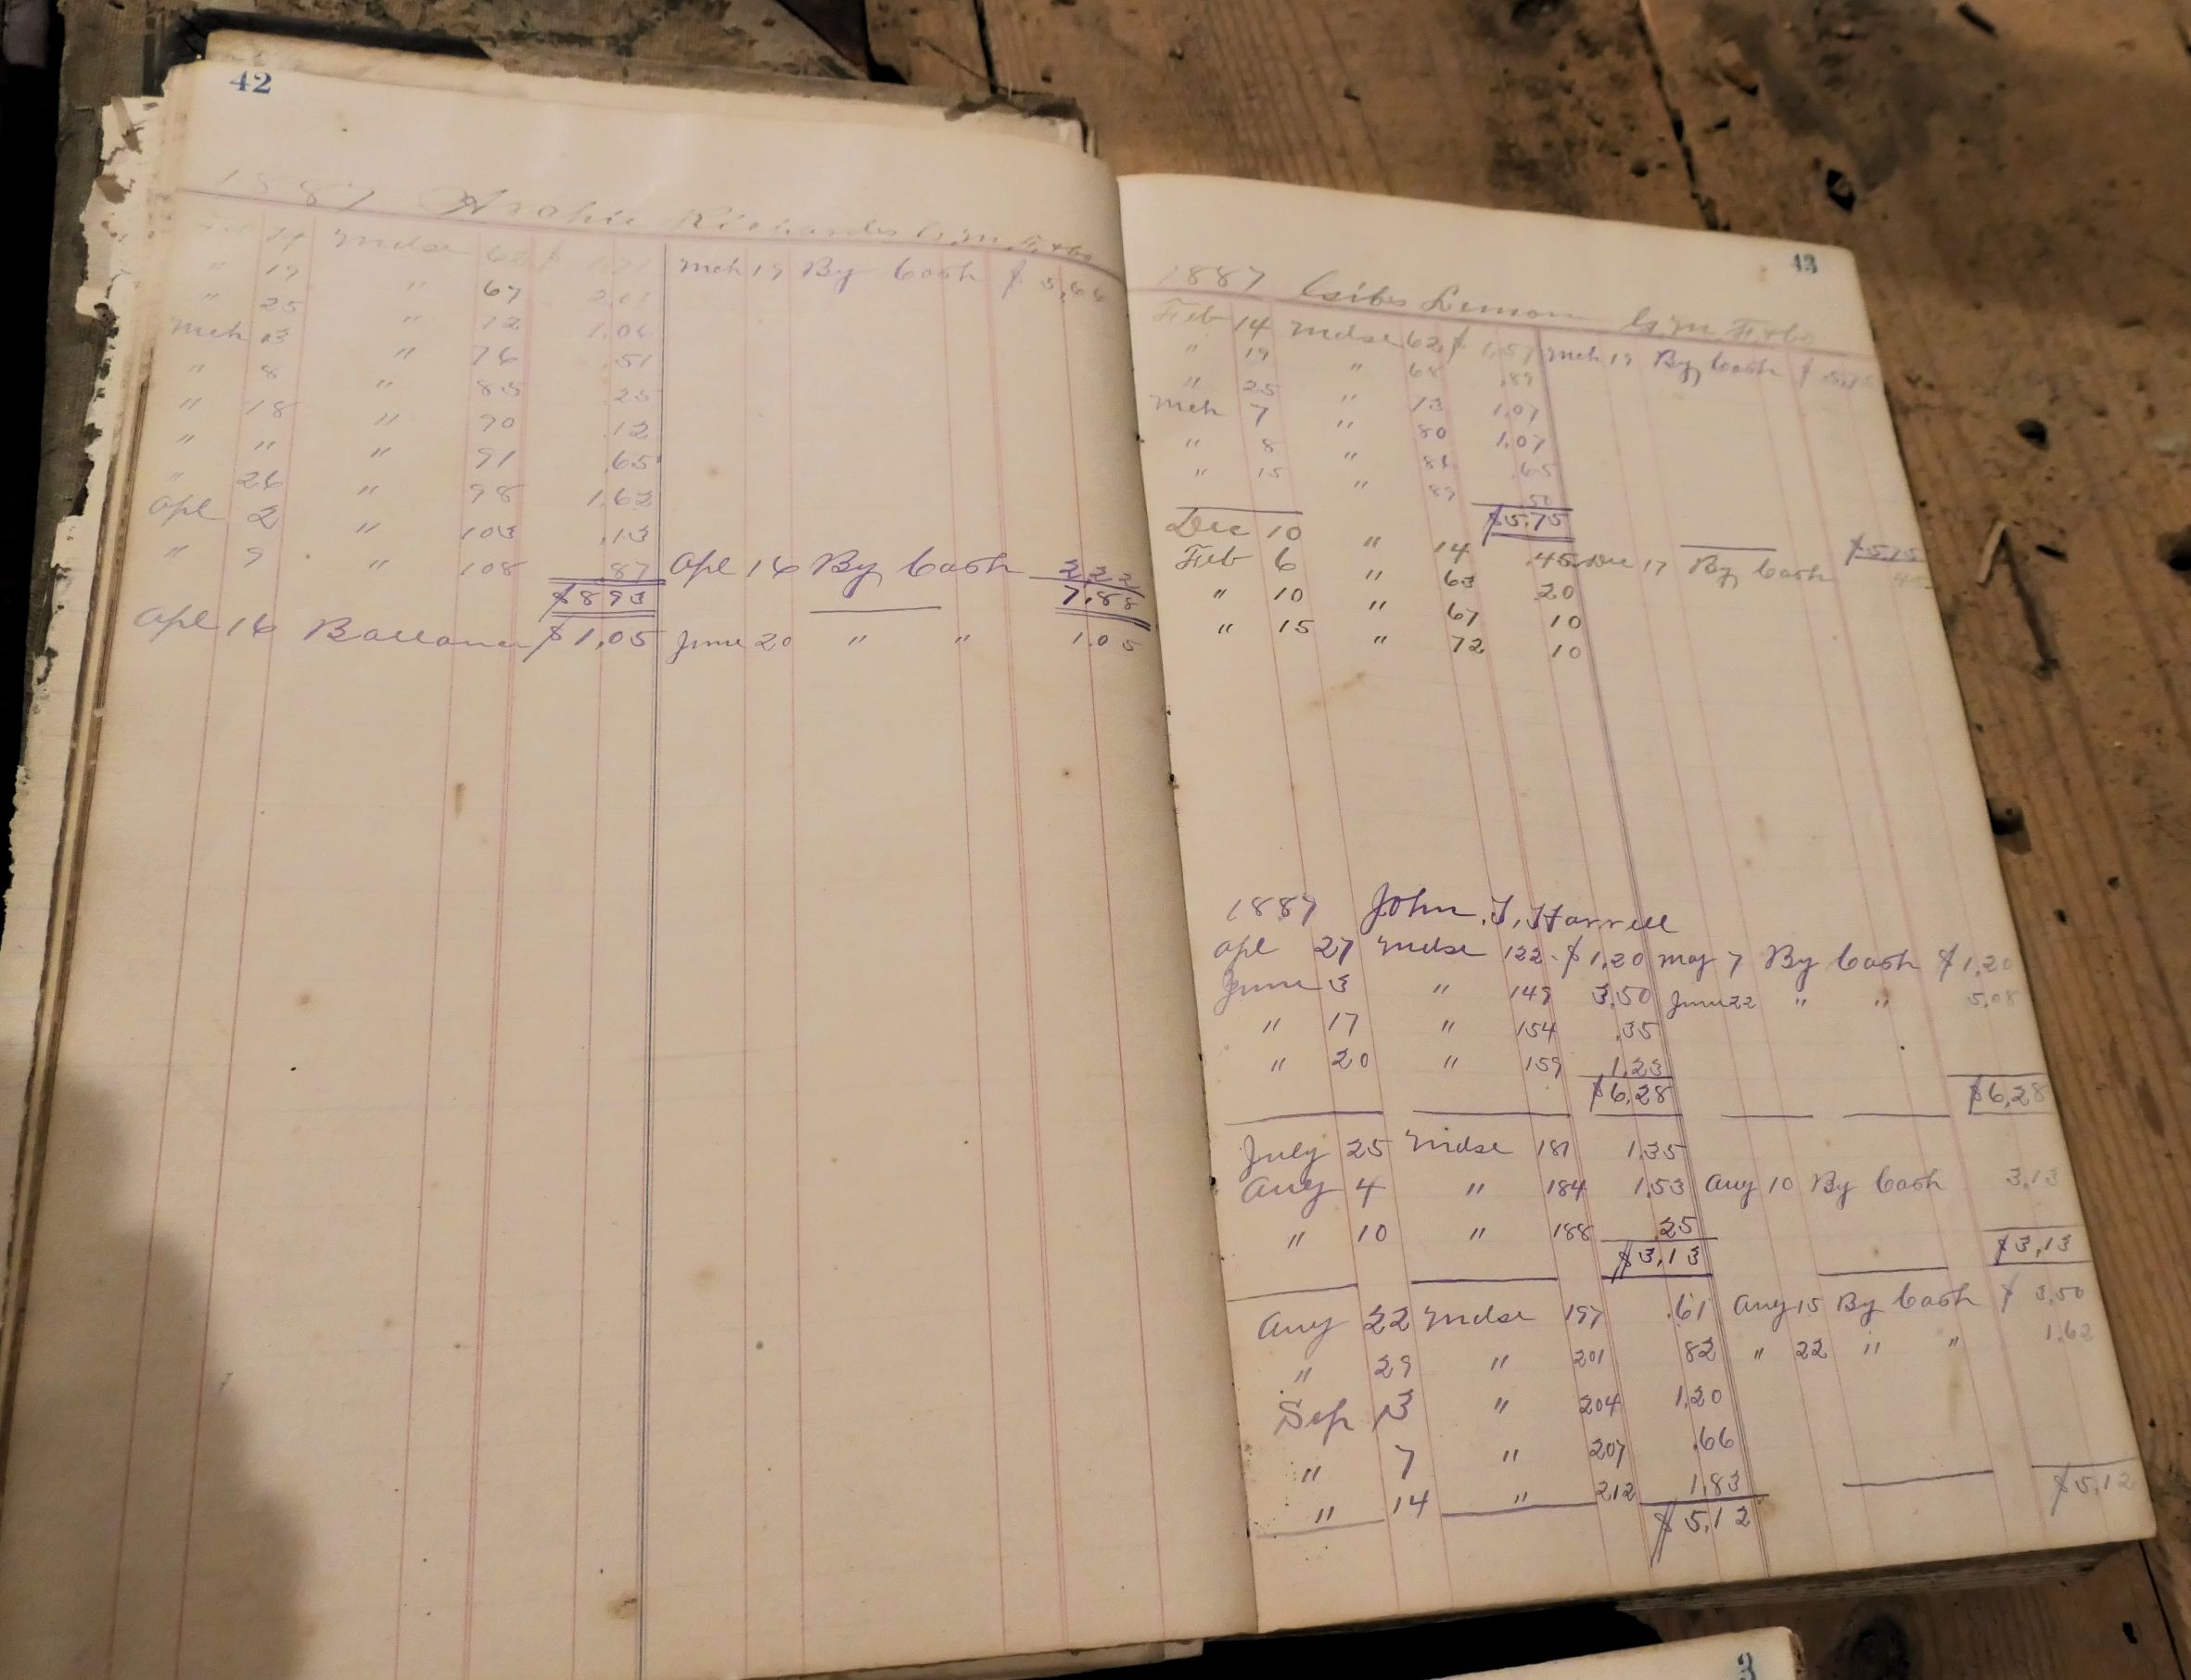 42
1887 Archie Richards
14 Mdse 62 $ Mch 19 By Cash $ 5,66
" 19 " 67
" 25 " 72
Mch 3 " 76 .51
" 8 " 85 25
" 18 " 90 .12
" " " 91 .65
" 26 " 98 1.62
Apl 2 " 103 .13
" 9 " 108 .87 Apl 16 By Cash 2.22
$893 7.88
Apl 16 $1.05 June 20 " " 1.05
43
1887 Lemon
Feb 14 Mdse 62 $ 1.57 Mch 19 By Cash $ 5.75
" 19 " 68 .89
" 25 " 73 1,07
Mch 7 " 80 1,07
" 8 " .65
" 15 " 89 .50
$5.75 $5.75
Dec 10 " 14 .45 Dec 17 By Cash 45
Feb 6 " 63 20
" 10 " 67 10
" 15 " 72 10
1887 John. T. Harrell
Apl 27 Mdse 122 $1,20 May 7 By Cash $1,20
June 3 " 149 3,50 June 22 " " 5,08
" 17 " 154 .35
" 20 " 159 1.23
$6,28 $6,28
July 25 Mdse 181 1.35
Aug 4 " 184 1.53 Aug 10 By Cash 3,13
" 10 " 188 .25
$3,13 $3,13
Aug 22 Mdse 197 .61 Aug 15 By Cash $ 3,50
" 29 " 201 82 " 22 " " 1.62
Sep 3 " 204 1,20
" 7 " 207 .66
" 14 " 212 1,83
$5,12 $5,12
3